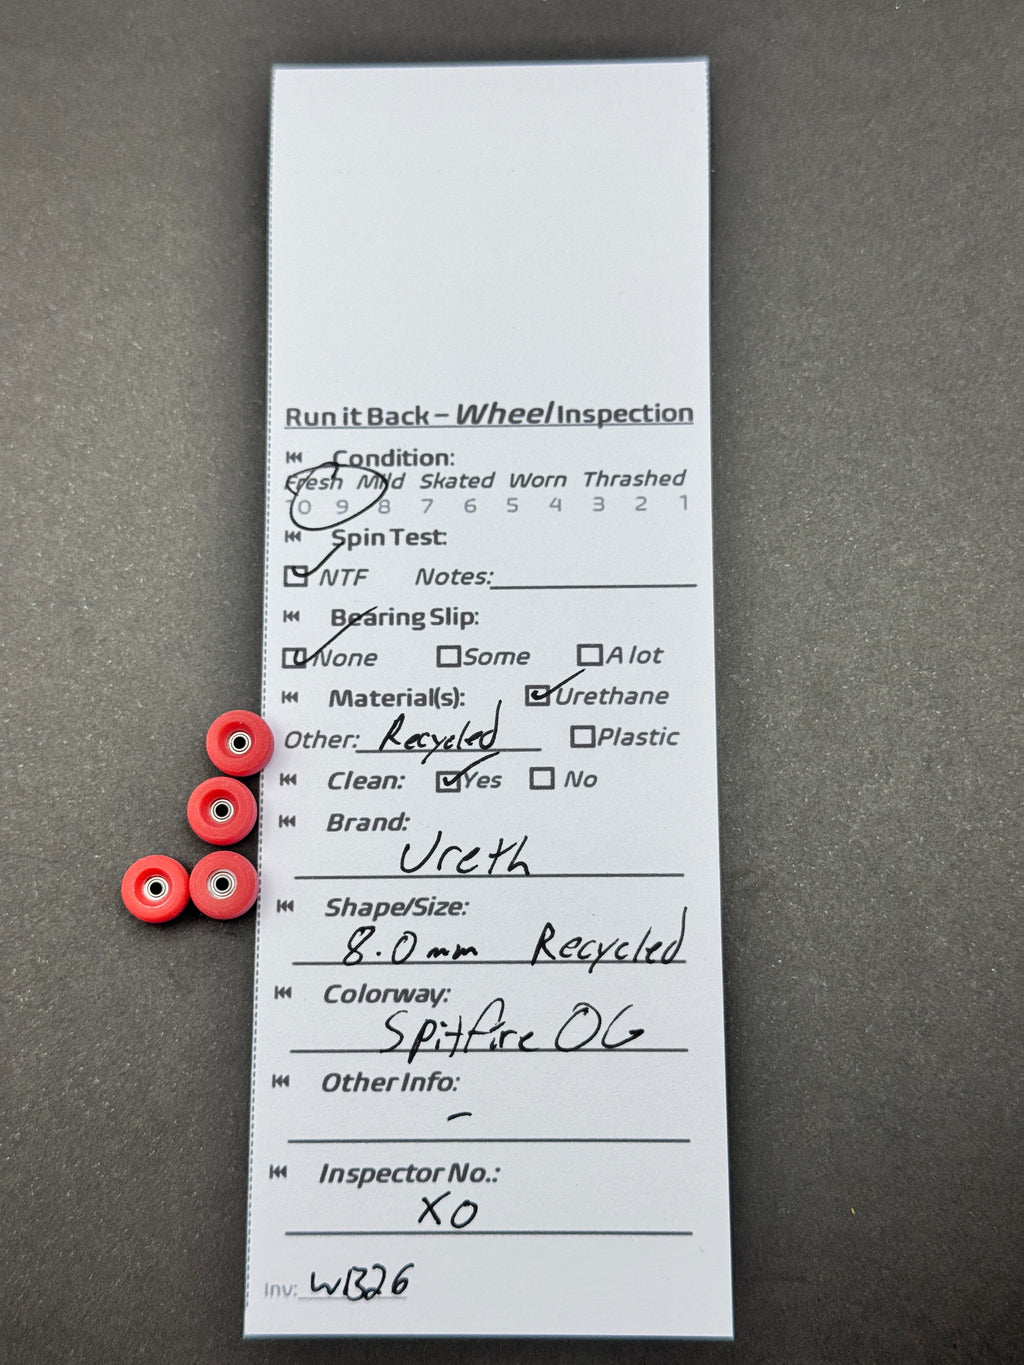 Run it Back – Wheel Inspection
Condition:
Fresh Mild Skated Worn Thrashed
10 9 8 7 6 5 4 3 2 1
Spin Test:
NTF Notes:
Bearing Slip:
None Some A lot
Material(s): Urethane
Other: Recycled Plastic
Clean: Yes No
Brand:
Ureth
Shape/Size:
8.0mm Recycled
Colorway:
Spitfire OG
Other Info:
–
Inspector No.:
XO
Inv: WB26